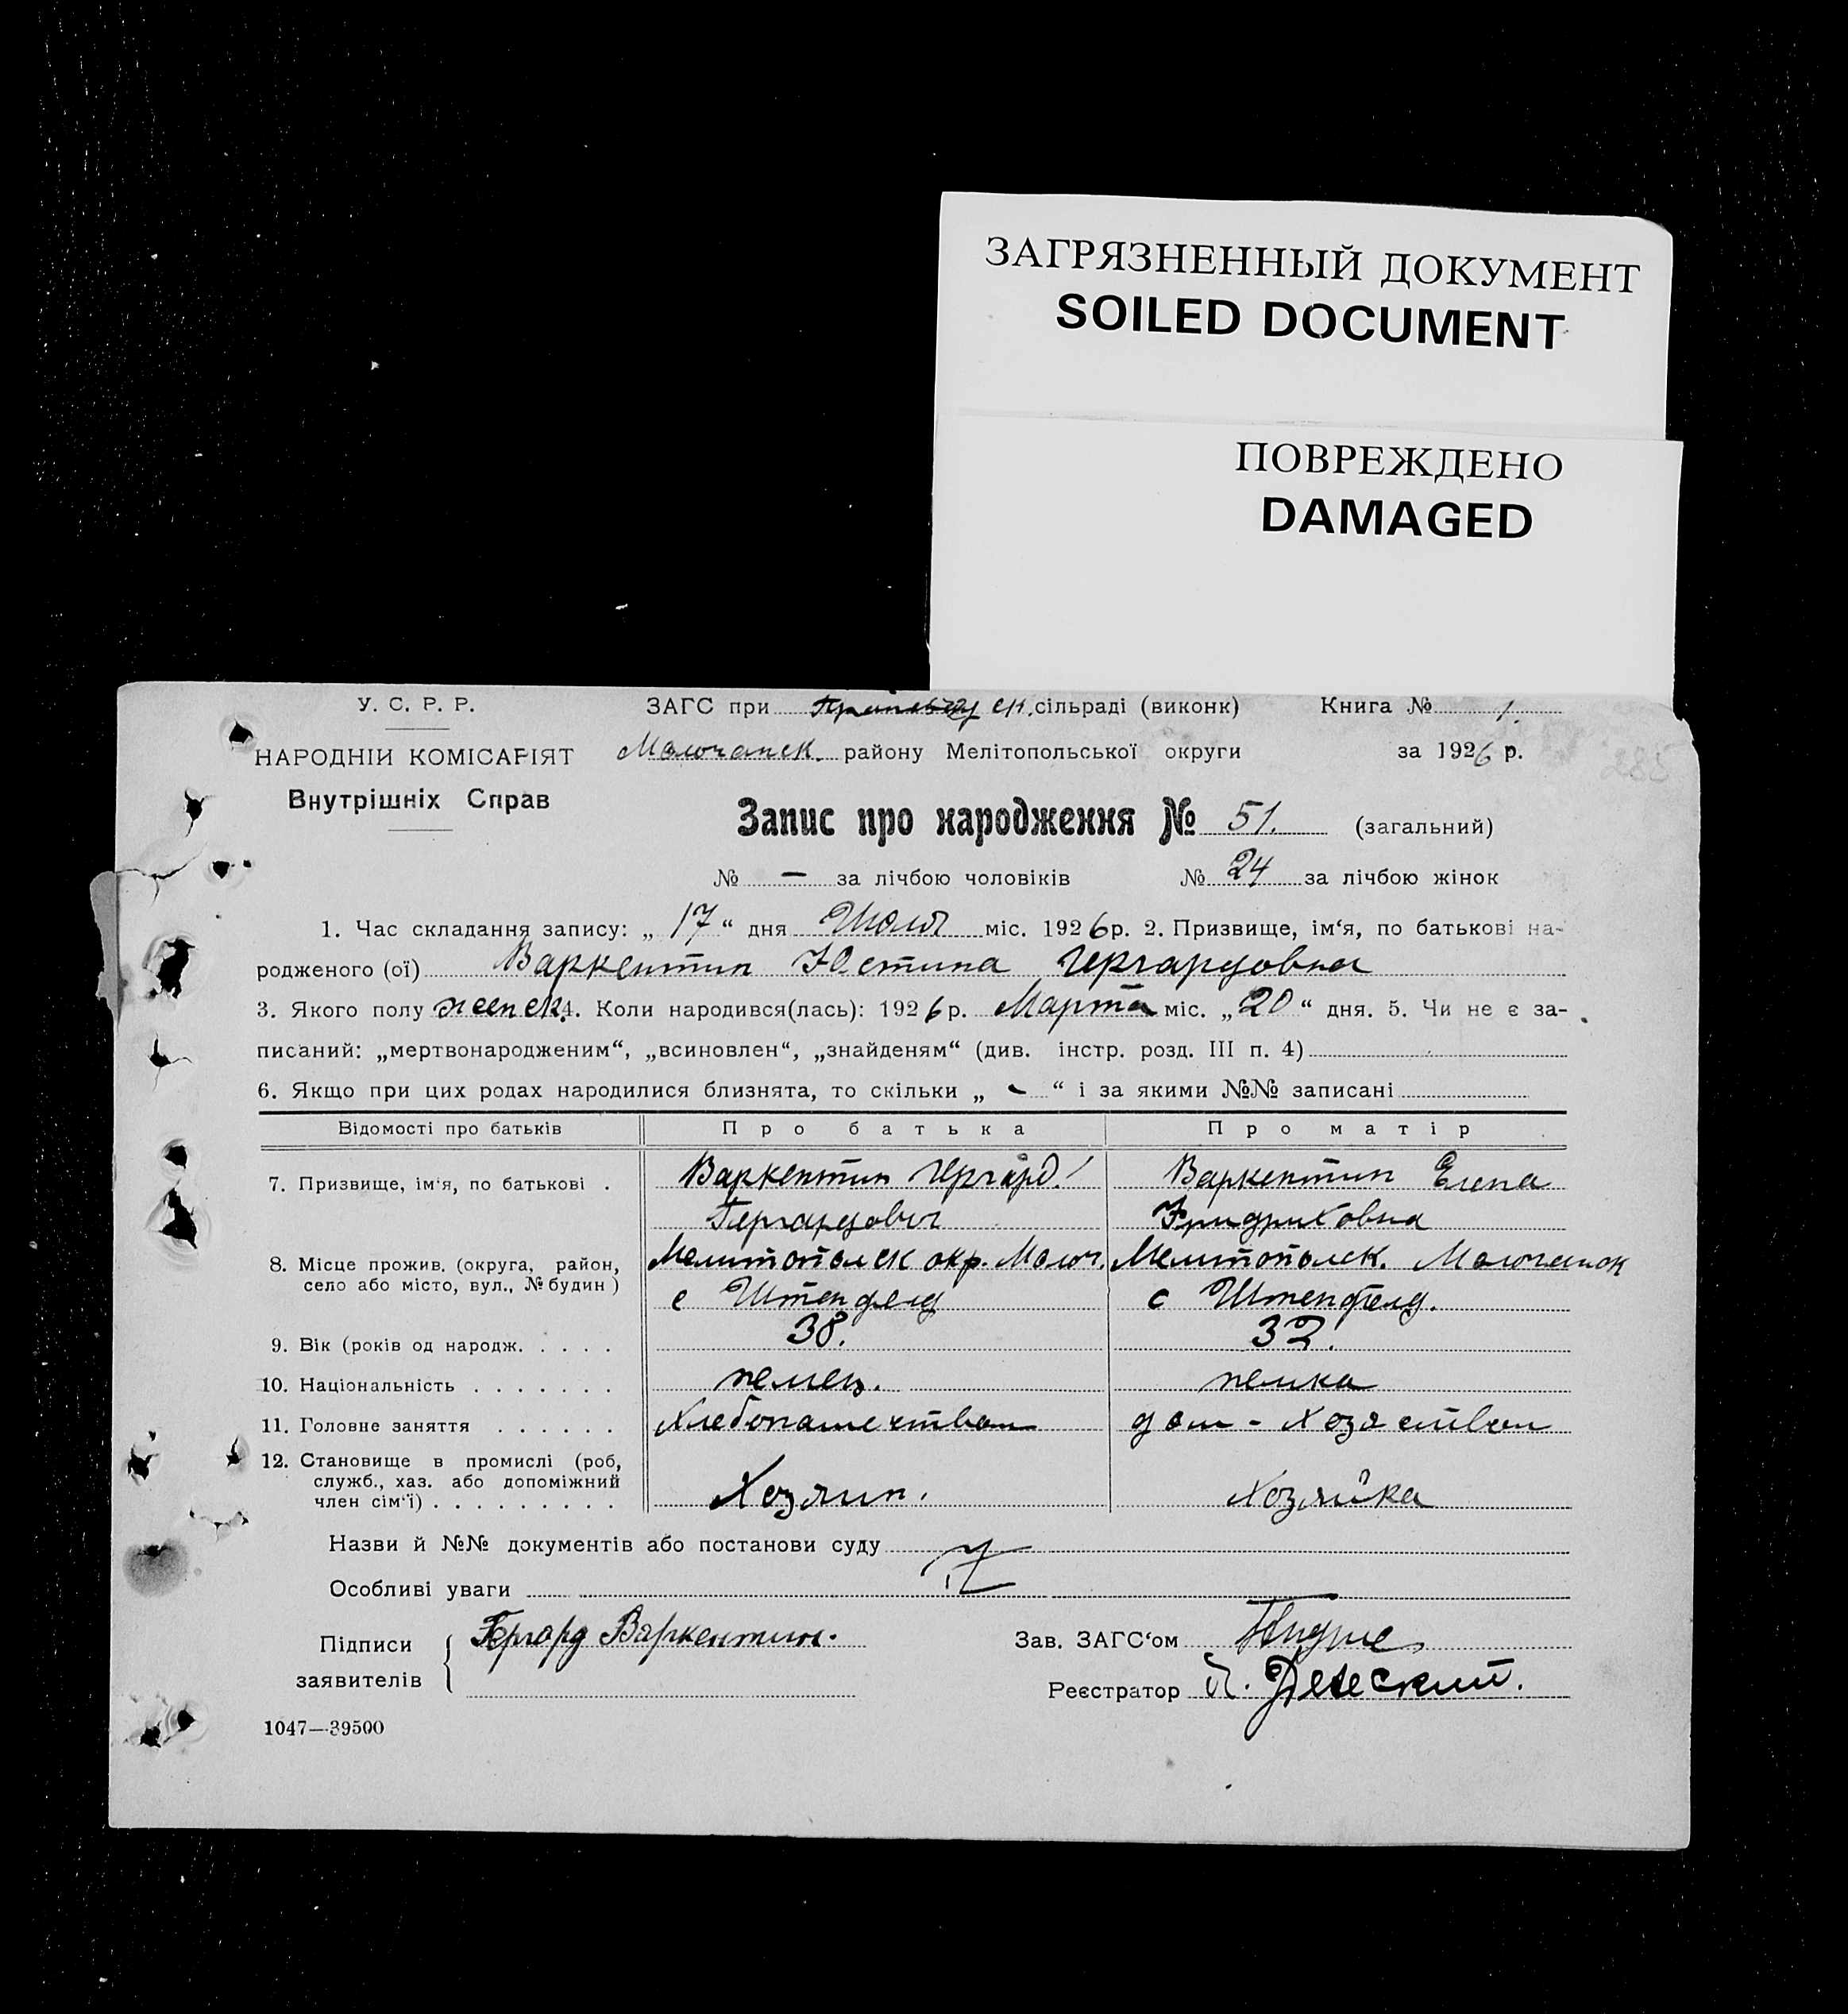 ЗАГРЯЗНЕННЫЙ ДОКУМЕНТ
SOILED DOCUMENT
ПОВРЕЖДЕНО
DAMAGED
У. С. Р. Р.
ЗАГС при сільраді (виконк) Книга № 1.
НАРОДНІЙ КОМІСАРІЯТ
Молочанск. району Мелітопольської округи за 1926 р.
Внутрішніх Справ
Запис про народження № 51. (загальний)
№ — за лічбою чоловіків № 24 за лічбою жінок
1. Час складання запису: „ 17 “ дня Июля міс. 1926 р. 2. Призвище, ім‘я, по батькові на-
родженого (ої) Варкентин Юстина Гергардовна
3. Якого полу женск. 4. Коли народився(лась): 1926 р. Марта міс. „ 20 “ дня. 5. Чи не є за-
писаний: „мертвонародженим“, „всиновлен“, „знайденям“ (див. інстр. розд. III п. 4)
6. Якщо при цих родах народилися близнята, то скільки „ - “ і за якими №№ записані
Відомості про батьків Про батька Про матір
7. Призвище, ім‘я, по батькові . Варкентин Гергард Варкентин Елена
Гергардович Фридриховна
8. Місце прожив. (округа, район, село або місто, вул., № будин ) Мелитопольск окр. Молоч. Мелитопольск. Молочанск
с Штенфелд с Штенфелд.
9. Вік (років од народж. . . . . 38. 32.
10. Національність . . . . . . . немец. немка
11. Головне заняття . . . . . . Хлебопашеством дом - Хозяством
12. Становище в промислі (роб,
служб., хаз. або допоміжний
член сім‘ї) . . . . . . . . . Хозяин. Хозяйка
Назви й №№ документів або постанови суду
Особливі уваги
Підписи заявителів Гергард Варкентин.
Зав. ЗАГС‘ом
Реєстратор
1047—39500